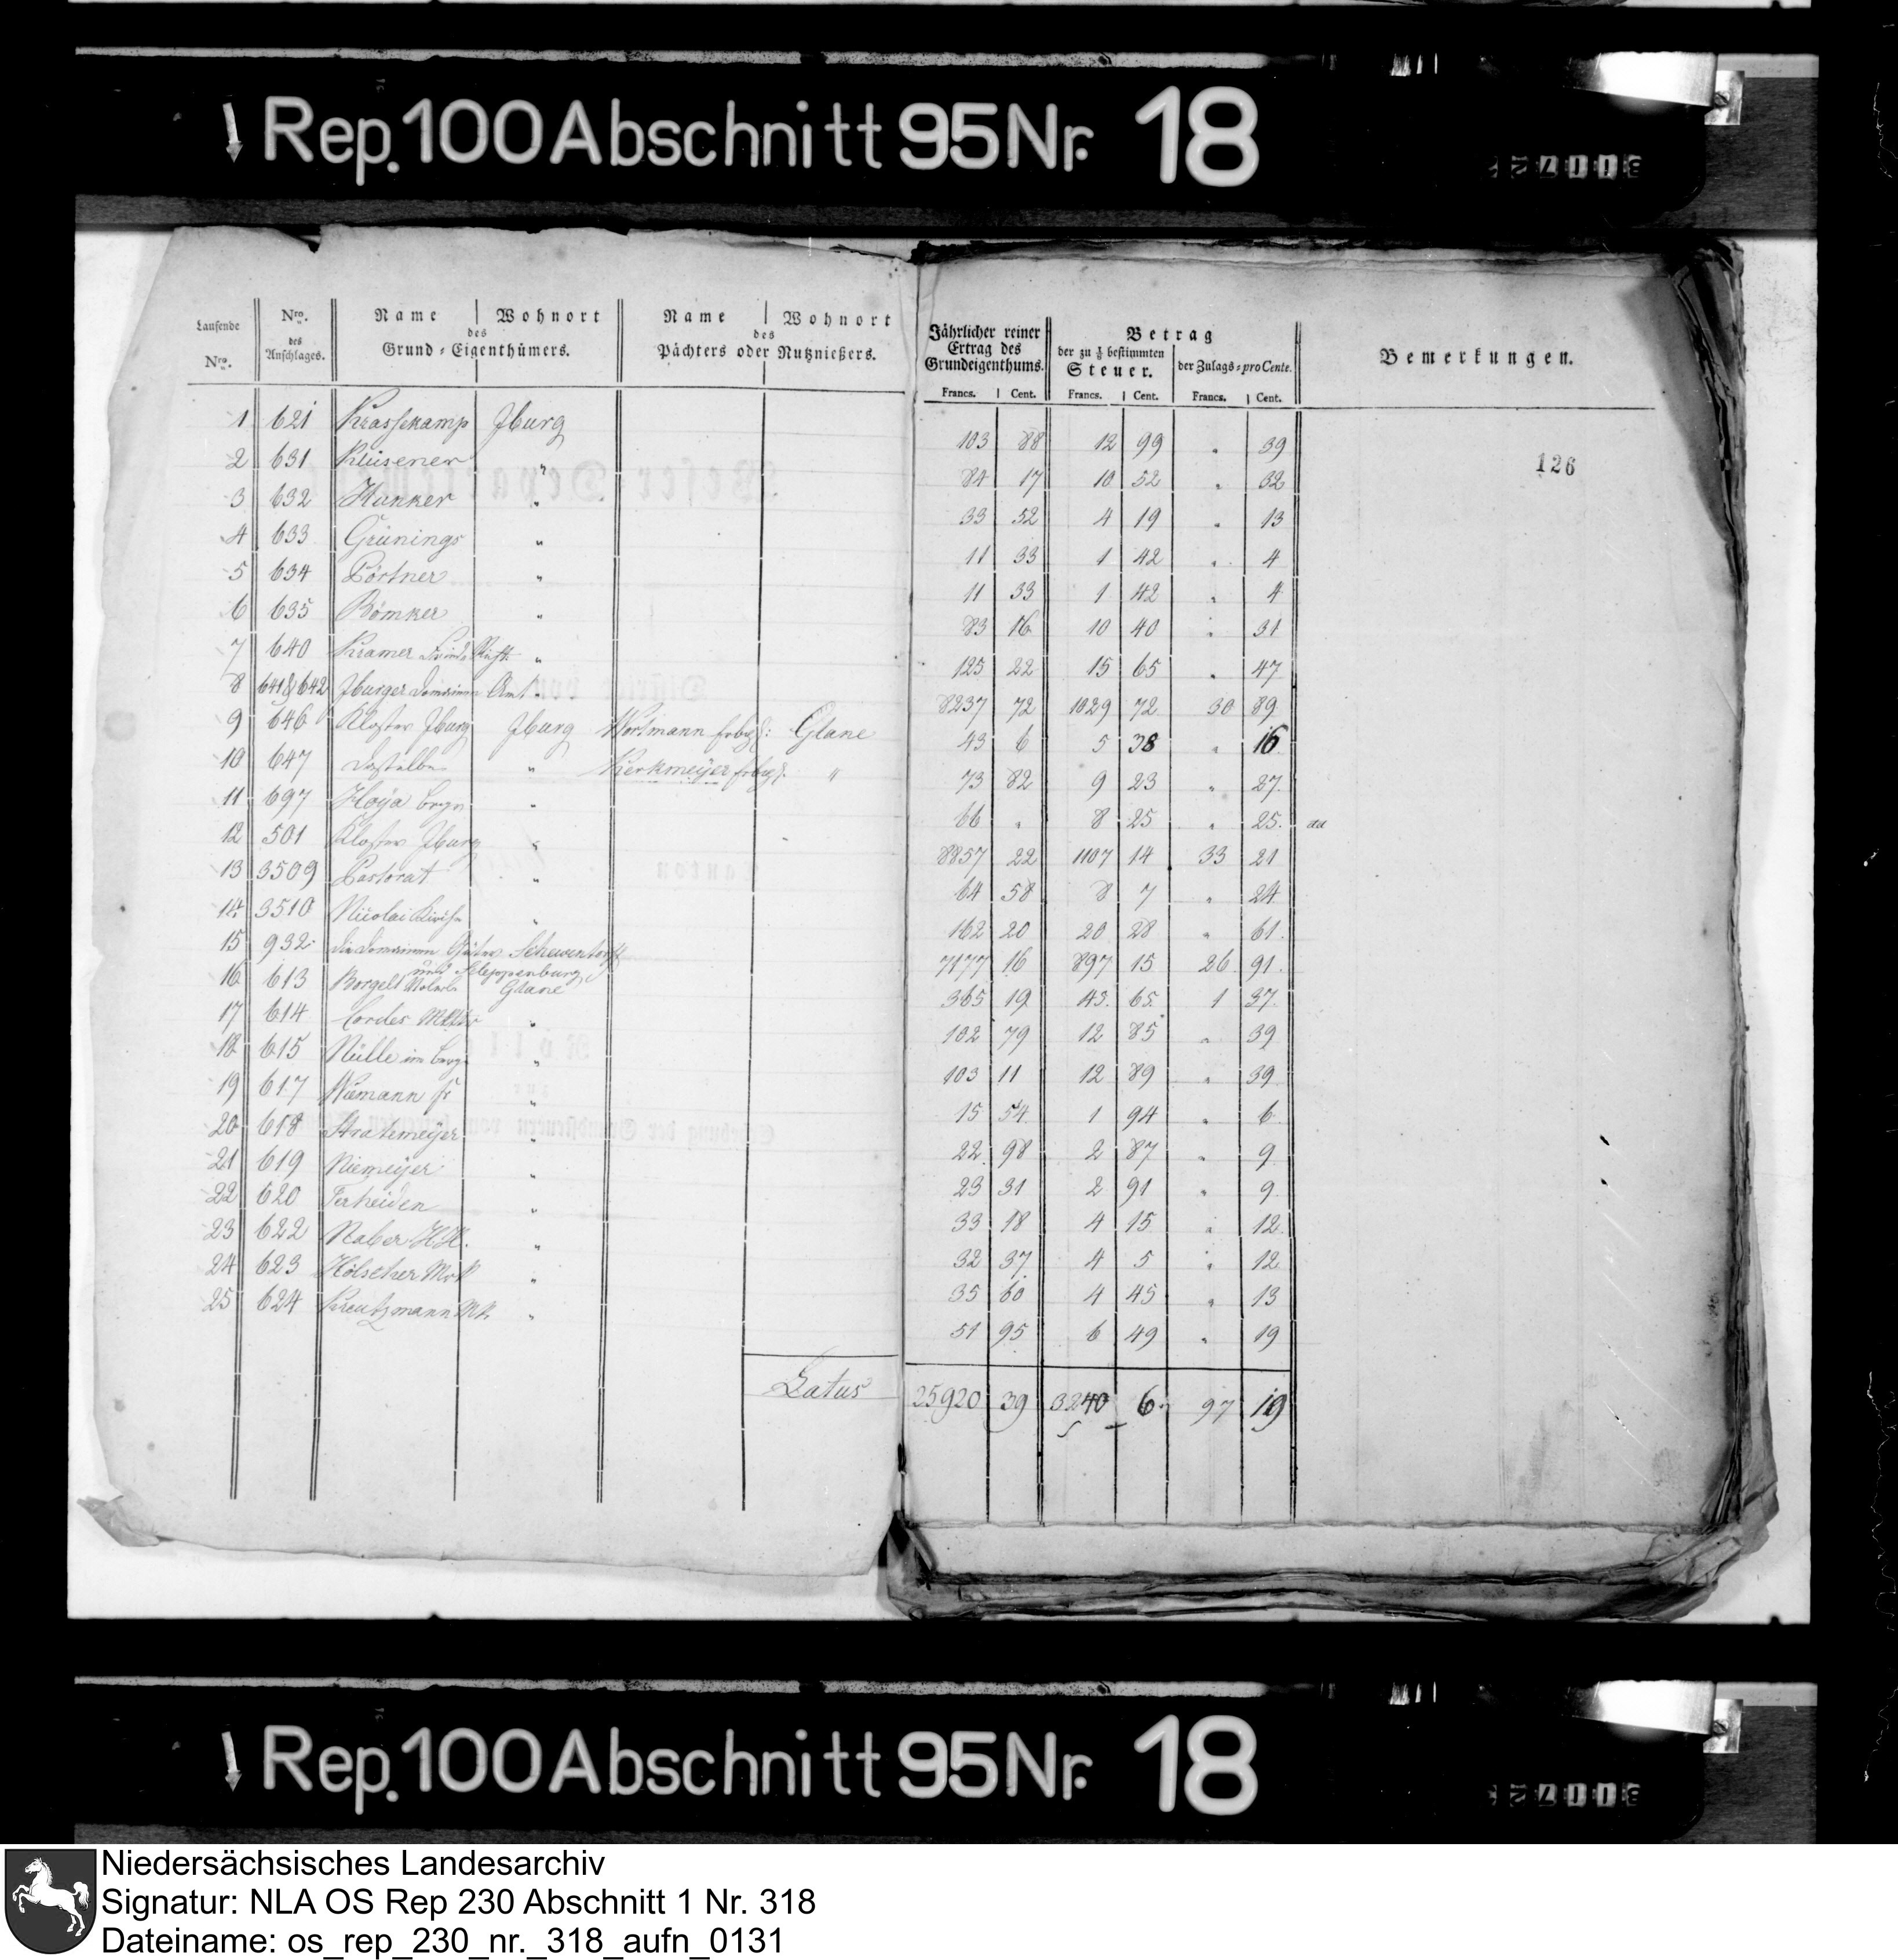 Rep. 100 Abschnitt 95 Nr. 18
Laufende Nro. | Nro. des Anschlages. | Name | Wohnort des Grund-Eigenthümers. | Name | Wohnort des Pächters oder Nutznießers. | Jährlicher reiner Ertrag des Grundeigenthums. | Betrag der zu ⅛ bestimmten Steuer. | der Zulags-pro Cente. | Bemerkungen.
Francs. | Cent. | Francs. | Cent. | Francs. | Cent.
126
1 621 Krassekamp Iburg 103 88 12 99 " 39
2 631 Klüsener " 84 17 10 52 " 32
3 632 Hunker " 33 52 4 19 " 13
4 633 Grünings " 11 33 1 42 " 4
5 634 Pörtner " 11 33 1 42 " 4
6 635 Bömker " 83 16 10 40 " 31
7 640 Kramer " 125 22 15 65 " 47
8 641 & 642 Iburger Domainen Amt " 8237 72 1029 72 30 89
9 646 Kloster Iburg Iburg Wortmann Glane 43 6 5 38 " 16
10 647 Dasselbe " Kerkmeijer " 73 82 9 23 " 27
11 697 Hoya " 66 " 8 25 " 25
12 501 Kloster Iburg " 8857 22 1107 14 33 21
13 3509 Pastorat " 64 58 8 7 " 24
14 3510 Nicolai Kirche " 162 20 20 28 " 61
15 932 die Domainen Güter Scheventorff und Sleppenburg 7177 16 897 15 26 91
16 613 Borgelt Glane 365 19 45 65 1 37
17 614 Cordes " 102 79 12 85 " 39
18 615 Nülle im Berge " 103 11 12 89 " 39
19 617 Niemann " 15 54 1 94 " 6
20 618 Stratemeijer " 22 98 2 87 " 9
21 619 Niemeijer " 23 31 2 91 " 9
22 620 Terheiden " 33 18 4 15 " 12
23 622 Naber H.H. " 32 37 4 5 " 12
24 623 Hölscher MK " 35 60 4 45 " 13
25 624 Kreutzmann MK " 51 95 6 49 " 19
Latus 25920 39 3240 6 97 19
Rep. 100 Abschnitt 95 Nr. 18
Niedersächsisches Landesarchiv
Signatur: NLA OS Rep 230 Abschnitt 1 Nr. 318
Dateiname: os_rep_230_nr._318_aufn_0131